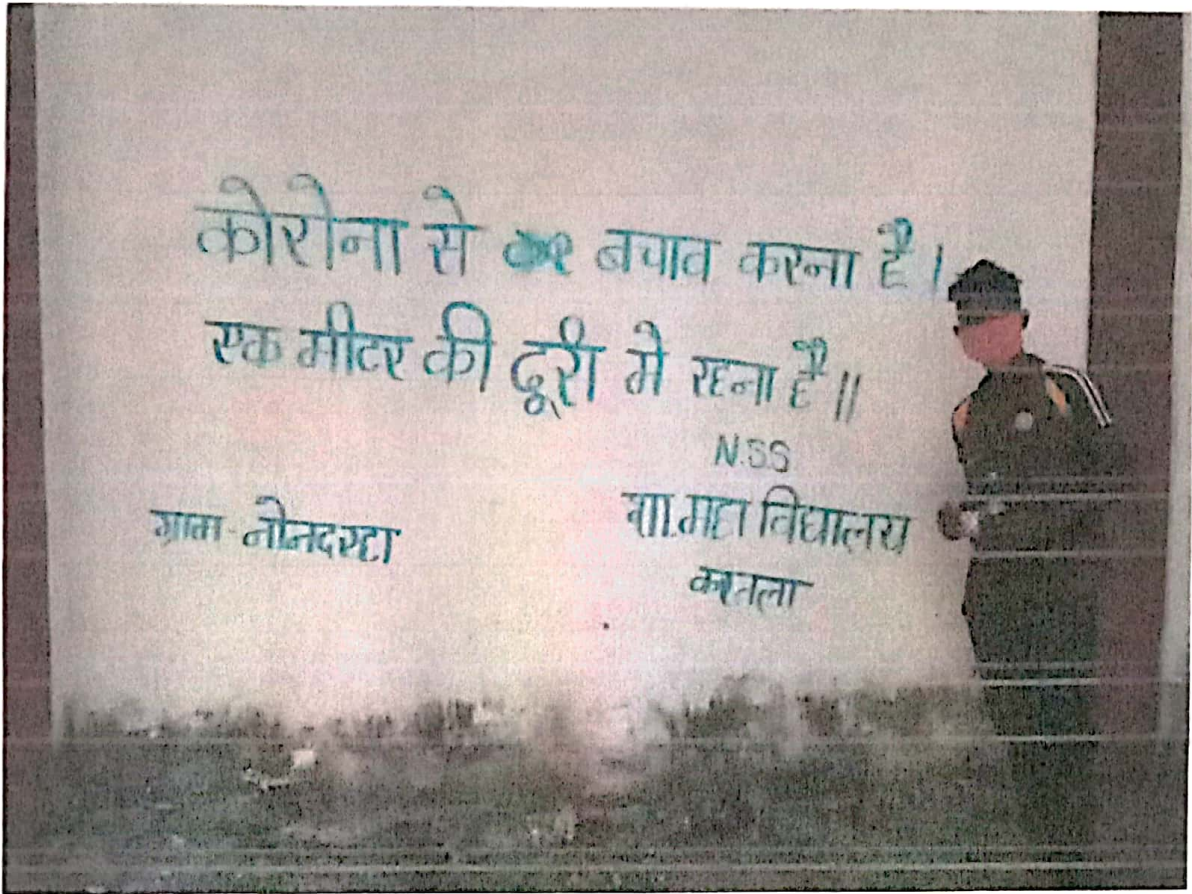 कोरोना से बचाव करना है।
एक मीटर की दूरी मे रहना है॥
N.S.S
ग्राम-नोनदरहा
शा.महा विद्यालय
करतला